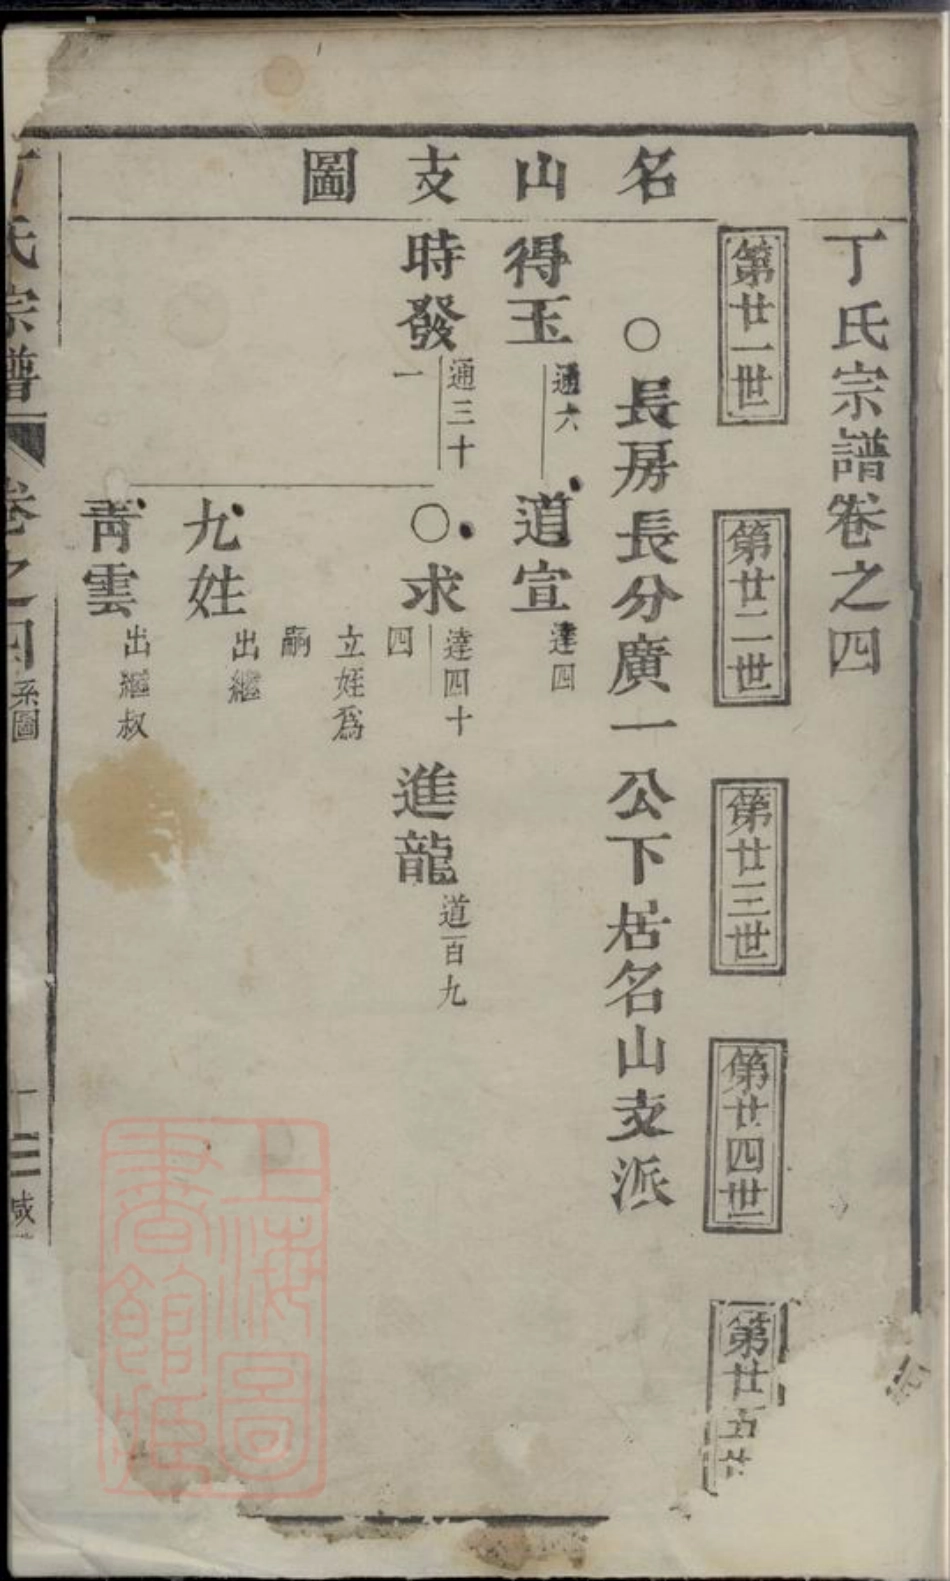 名山支圖
丁氏宗譜卷之四
第廿一世
第廿二世
第廿三世
第廿四世
第廿五世
○長房長分廣一公下居名山支派
得玉 通六
道宣 達四
時發 通三十一
○求 達四十四 立姪爲嗣
進龍 道百九
九姓 出繼
青雲 出繼叔
丁氏宗譜 卷之四 系圖 十三 咸
上海圖書館藏